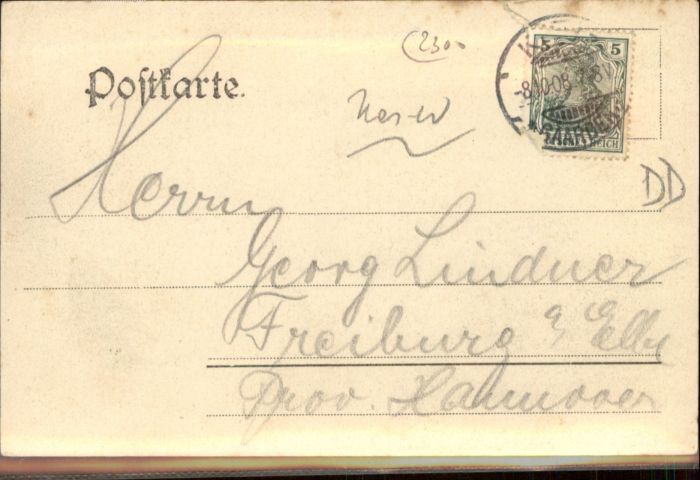 (2300
5
Postkarte.
-8.10.08
SAARBURG
REICH
DD
Herrn
Georg Lindner
Freiburg a/Elbe
Prov. Hannover